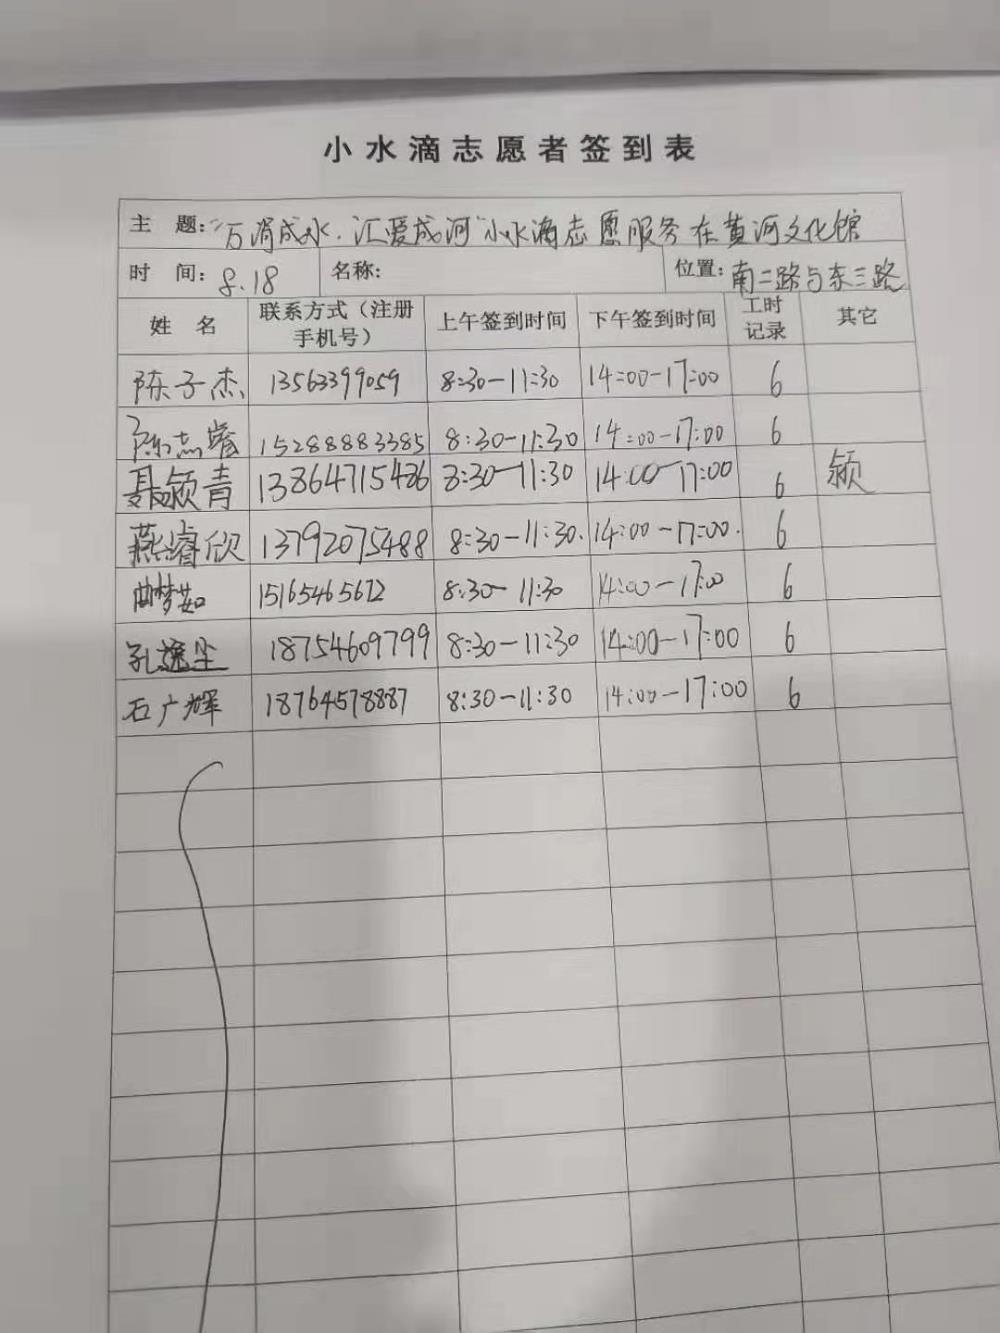 小水滴志愿者签到表
主 题:“万涓成水.汇爱成河”小水滴志愿服务在黄河文化馆
时 间: 8.18 名称: 位置: 南二路与东三路
姓 名 联系方式（注册手机号） 上午签到时间 下午签到时间 工时记录 其它
陈子杰 13563399059 8:30-11:30 14:00-17:00 6
陈志睿 15288883385 8:30-11:30 14:00-17:00 6
聂颍青 13864715486 8:30-11:30 14:00-17:00 6 颍
燕睿欣 13792075488 8:30-11:30. 14:00-17:00. 6
曲梦茹 15165465672 8:30-11:30 14:00-17:00 6
孔逸尘 18754609799 8:30-11:30 14:00-17:00 6
石广辉 18764578887 8:30-11:30 14:00-17:00 6